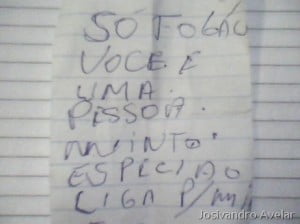 SÓ FOGÃO
VOCE E
UMA.
PESSOA.
MUINTO.
ESPECIAO
LIGA P/
Josivandro Avelar